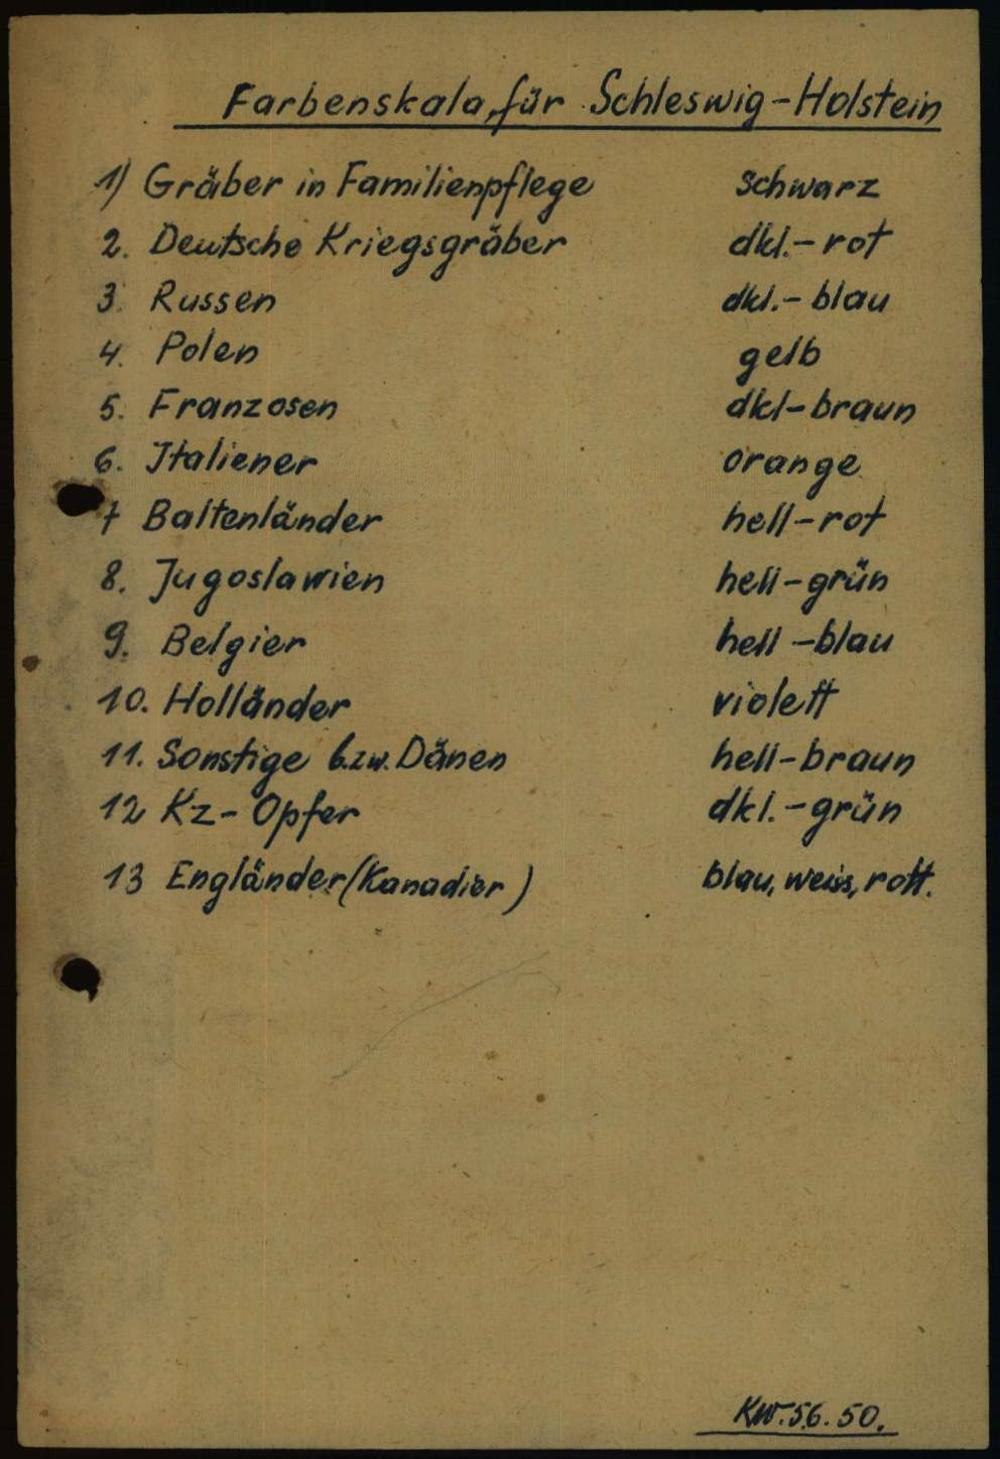 Farbenskala, für Schleswig-Holstein
1) Gräber in Familienpflege schwarz
2. Deutsche Kriegsgräber dkl.- rot
3. Russen dkl.- blau
4. Polen gelb
5. Franzosen dkl-braun
6. Italiener orange
7 Baltenländer hell-rot
8. Jugoslawien hell-grün
9. Belgier hell-blau
10. Holländer violett
11. Sonstige bzw. Dänen hell-braun
12 Kz-Opfer dkl.-grün
13 Engländer (Kanadier) blau, weiss, rott.
KW. 5.6. 50.